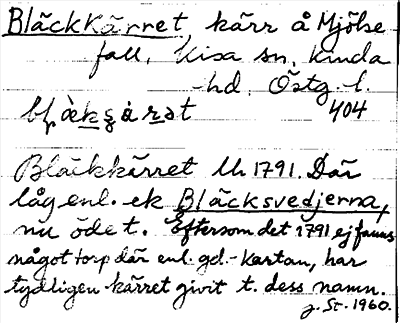 Bläckkärret, kärr å Mjölse
fall, Kisa sn, Kinda
hd, Östg. l.
404
Bläckkärret Lk 1791. Där
låg enl. ek Bläcksvedjerna,
nu öde t. Eftersom det 1791 ej fanns
något torp där enl. gd.-kartan, har
tydligen kärret givit t. dess namn.
J. St. 1960.